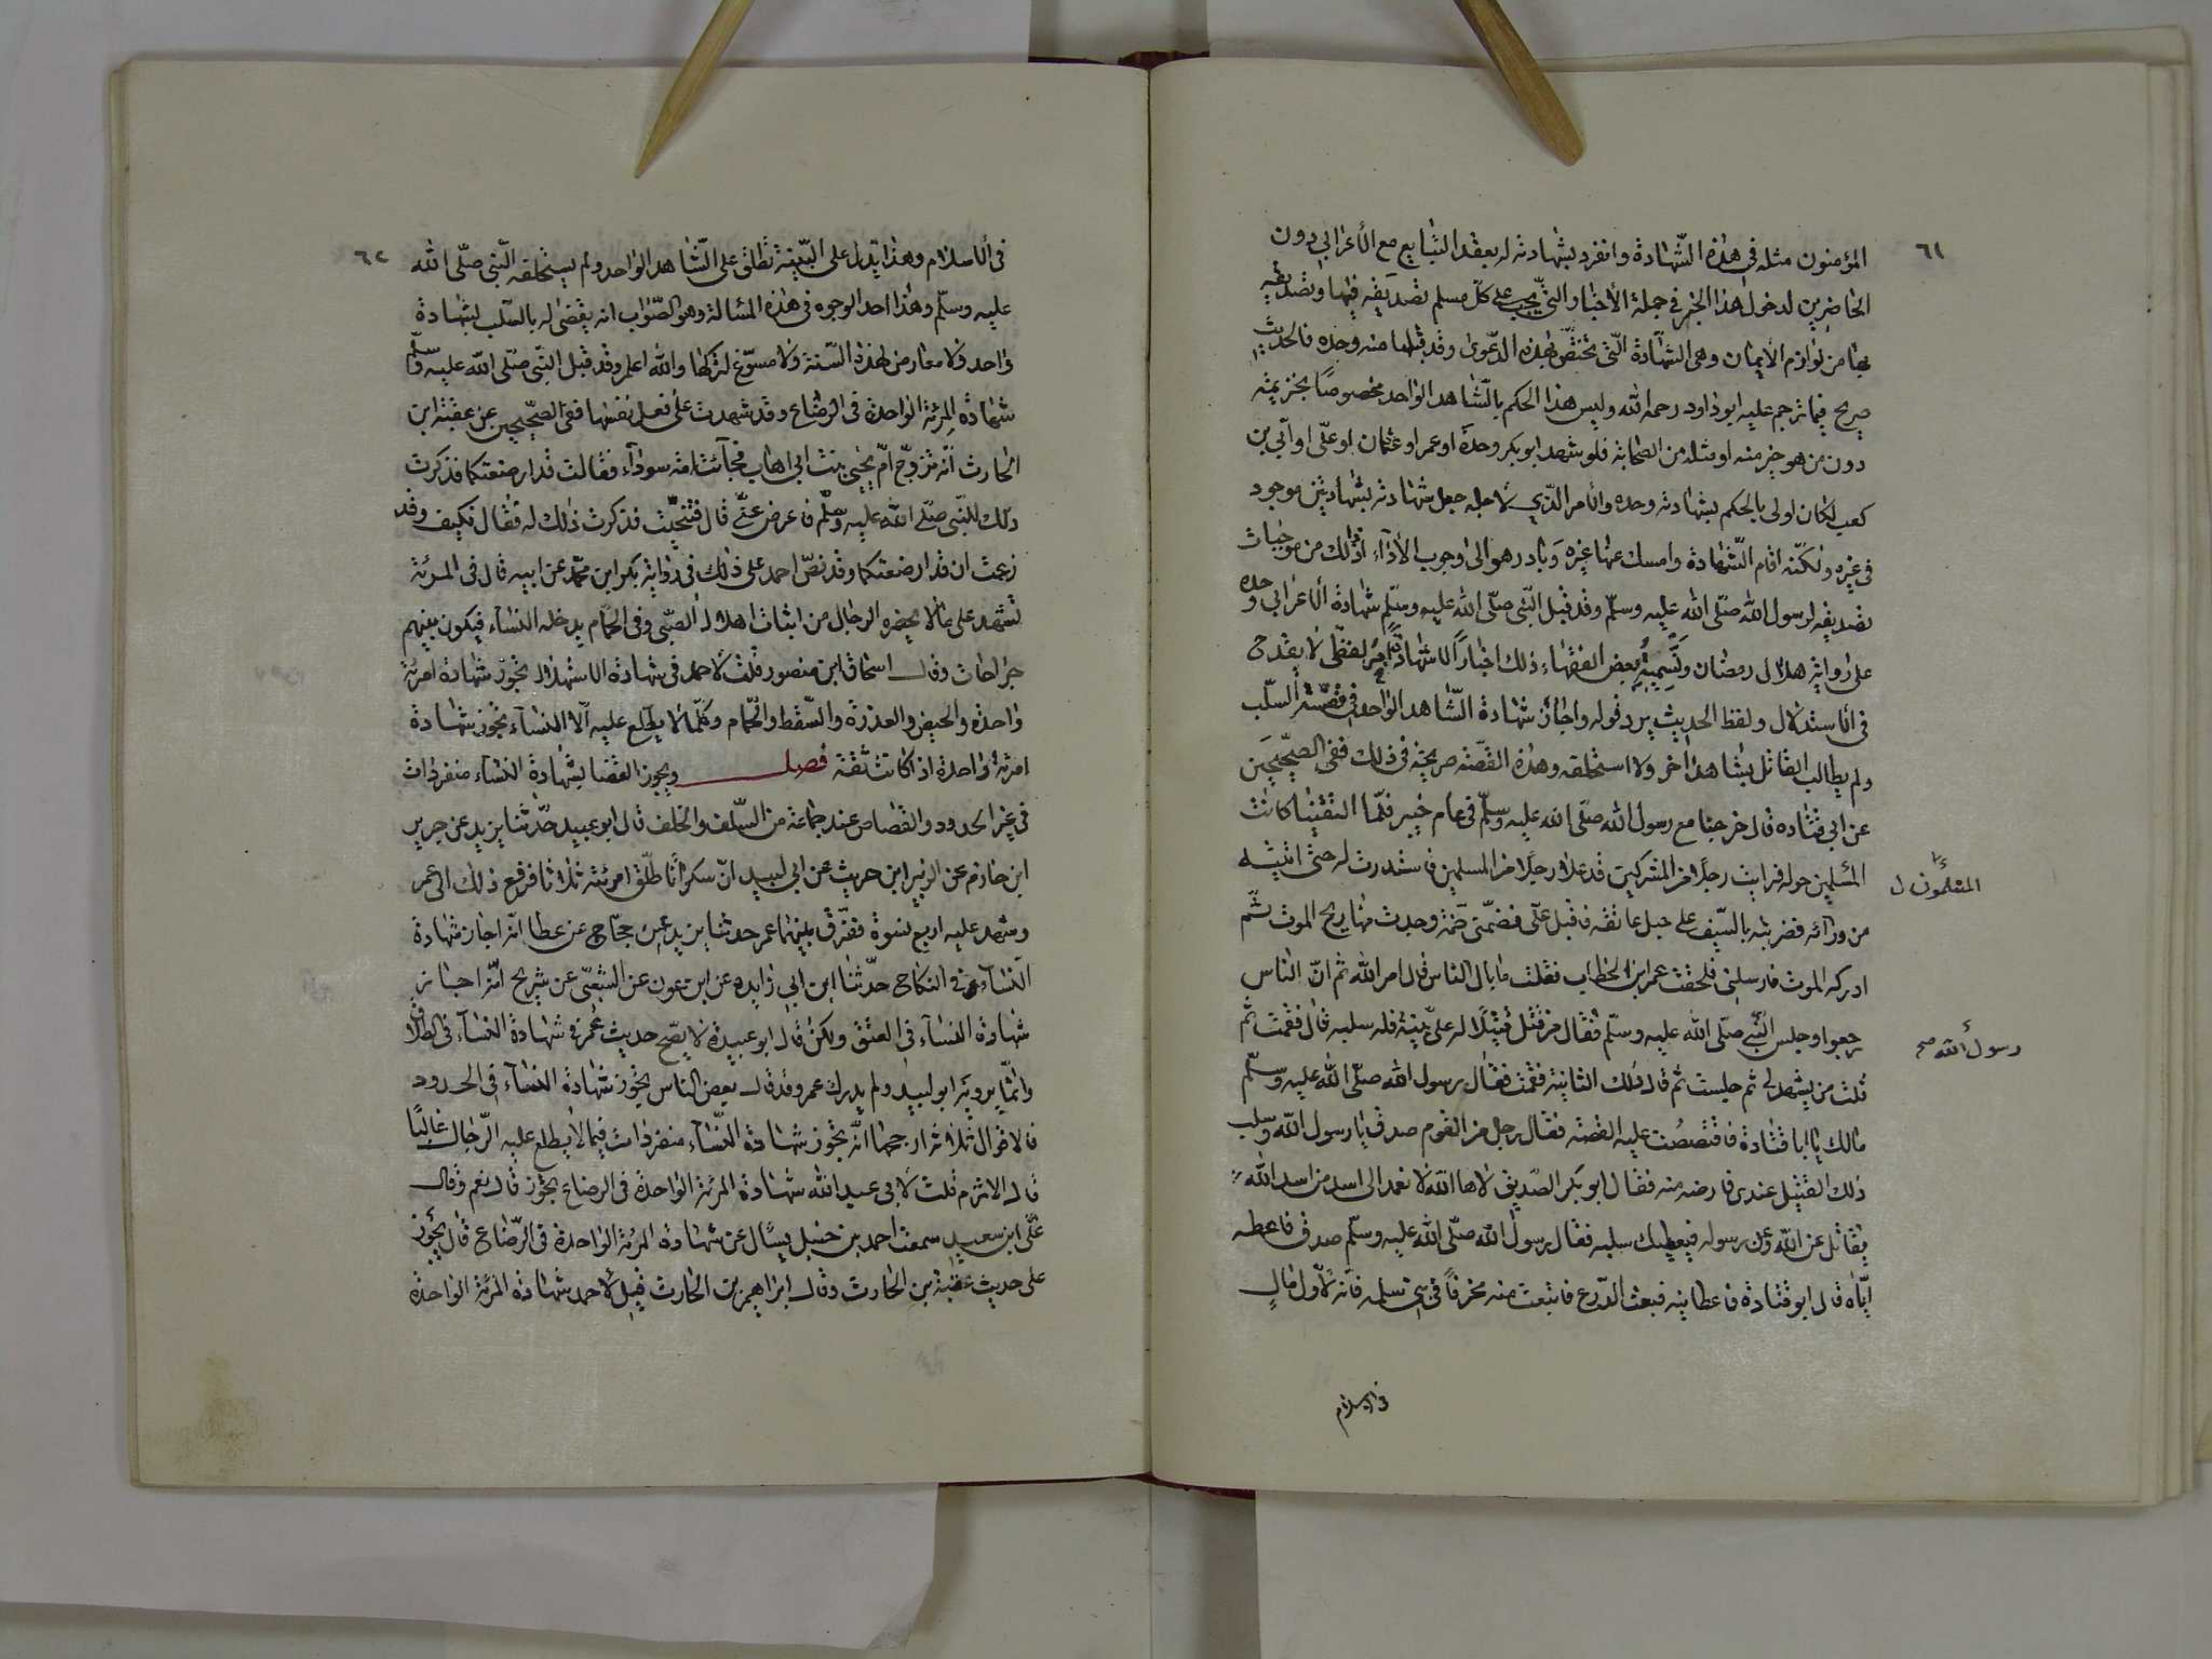 ٦١
المؤمنون مثله في هذه الشهادة وانفرد بشهادته له بعقد التبايع مع الأعرابي دون
الحاضرين لدخول هذا الخبر في جملة الأخبار التي يجب على كل مسلم تصديقه فيها وتصديقه
بها من لوازم الايمان وهي الشهادة التي تختص بهذه الدعوى وقد قبلها منه وحده فالحديث
صريح فيما ترجم عليه ابو داود رحمه الله وليس هذا الحكم بالشاهد الواحد مخصوصًا بخزيمة
دون من هو خير منه او مثله من الصحابة فلو شهد ابو بكر وحده او عمر او عثمان او علي او أبي بن
كعب لكان اولى بالحكم بشهادته وحده والأمر الذي لأجله جعل شهادته بشهادتين موجود
في غيره ولكنه اقام الشهادة وامسك عنها غيره وبادر هو الى وجوب الأداء اذ ذلك من موجبات
تصديقه لرسول الله صلى الله عليه وسلم وقد قبل النبي صلى الله عليه وسلم شهادة الأعرابي وحده
على رواية هلال رمضان وتسمية بعض الفقهاء ذلك اخبارًا لا شهادة امر لفظي لا يقدح
في الاستدلال ولفظ الحديث يرد قوله واجاز شهادة الشاهد الواحد في قصة السلب
ولم يطالب القاتل بشاهد اخر ولا استحلفه وهذه القصة صريحة في ذلك ففي الصحيحين
عن ابي قتاده قال خرجنا مع رسول الله صلى الله عليه وسلم في عام خيبر فلما التقينا كانت
المسلمين جولة فرايت رجلا من المشركين قد علا رجلا من المسلمين فاستدرت له حتى اتيته
المسلمون ن
من ورائه فضربته بالسيف على حبل عاتقه فاقبل علي فضمني ضمة وجدت منها ريح الموت ثم
ادركه الموت فارسلني فلحقت عمر ابن الخطاب فقلت ما بال الناس قال امر الله ثم ان الناس
رجعوا وجلس النبي صلى الله عليه وسلم فقال من قتل قتيلا له علي بينة فله سلبه قال فقمت ثم
رسول الله صح
قلت من يشهد لي ثم جلست ثم قال ذلك الثانية فقمت فقال رسول الله صلى الله عليه وسلم
مالك يا ابا قتادة فاقتصصت عليه القصة فقال رجل من القوم صدق يا رسول الله وسلب
ذلك القتيل عندي فارضه منه فقال ابو بكر الصديق لاها الله لا نعمد الى اسد من اسد الله
يقاتل عن الله وعن رسوله فيعطيك سلبه فقال رسول الله صلى الله عليه وسلم صدق فاعطه
اياه قال ابو قتادة فاعطانيه فبعت الدرع فابتعت منه مخرفًا في بني سلمه فانه لأول مال
في الاسلام
٦٢
في الاسلام وهذا يدل على البينة تطلق على الشاهد الواحد ولم يستحلفه النبي صلى الله
عليه وسلم وهذا احد الوجوه في هذه المسالة وهو الصواب انه يقضى له بالسلب بشهادة
واحد ولا معارض لهذه السنة ولا مسوغ لتركها والله اعلم وقد قبل النبي صلى الله عليه وسلم
شهادة المرئة الواحدة في الرضاع وقد شهدت على فعل نفسها ففي الصحيحين عن عقبة ابن
الحارث انه تزوج ام يحيى بنت ابي اهاب فجائت امة سوداء فقالت قد ارضعتكما فذكرت
ذلك للنبي صلى الله عليه وسلم فاعرض عني قال فتنحيت فذكرت ذلك له فقال فكيف وقد
زعمت ان قد ارضعتكما وقد نص احمد على ذلك في رواية بكر ابن محمد عن ابيه قال في المرئة
تشهد على مالا يحضره الرجال من اثبات اهلال الصبي وفي الحمام يدخله النساء فيكون بينهم
جراحات وقال اسحاق ابن منصور قلت لأحمد في شهادة الاستهلال تجوز شهادة امرئة
واحدة والحيض والعذرة والسقط والحمام وكلما لا يطلع عليه الا النساء تجوز شهادة
امرئة واحدة اذا كانت ثقة فصل ويجوز القضا بشهادة النساء منفردات
في غير الحدود والقصاص عند جماعة من السلف والخلف قال ابو عبيد حدثنا يزيد عن جرير
ابن حازم عن الزبير ابن حريث عن ابي لبيد ان سكرانًا طلق امرئته ثلاثا فرفع ذلك الى عمر
وشهد عليه اربع نسوة ففرق بينهما عمر حدثنا يزيد عن حجاج عن عطا انه اجاز شهادة
النساء في النكاح حدثنا ابن ابي زايده عن ابن عون عن الشعبي عن شريح انه اجاز
شهادة النساء في العتق ولكن قال ابو عبيدة لا يصح حديث عمر في شهادة النساء في الطلاق
وانما يرويه ابو لبيد ولم يدرك عمر وقد قال بعض الناس يجوز شهادة النساء في الحدود
فالاقوال ثلاثة ارجحها انه تجوز شهادة النساء منفردات فيما لا يطلع عليه الرجال غالبًا
قال الاثرم قلت لأبي عبد الله شهادة المرئة الواحدة في الرضاع تجوز قال نعم وقال
علي ابن سعيد سمعت احمد بن حنبل يسأل عن شهادة المرئة الواحدة في الرضاع قال يجوز
على حديث عقبة بن الحارث وقال ابراهيم بن الحارث قيل لأحمد شهادة المرئة الواحدة